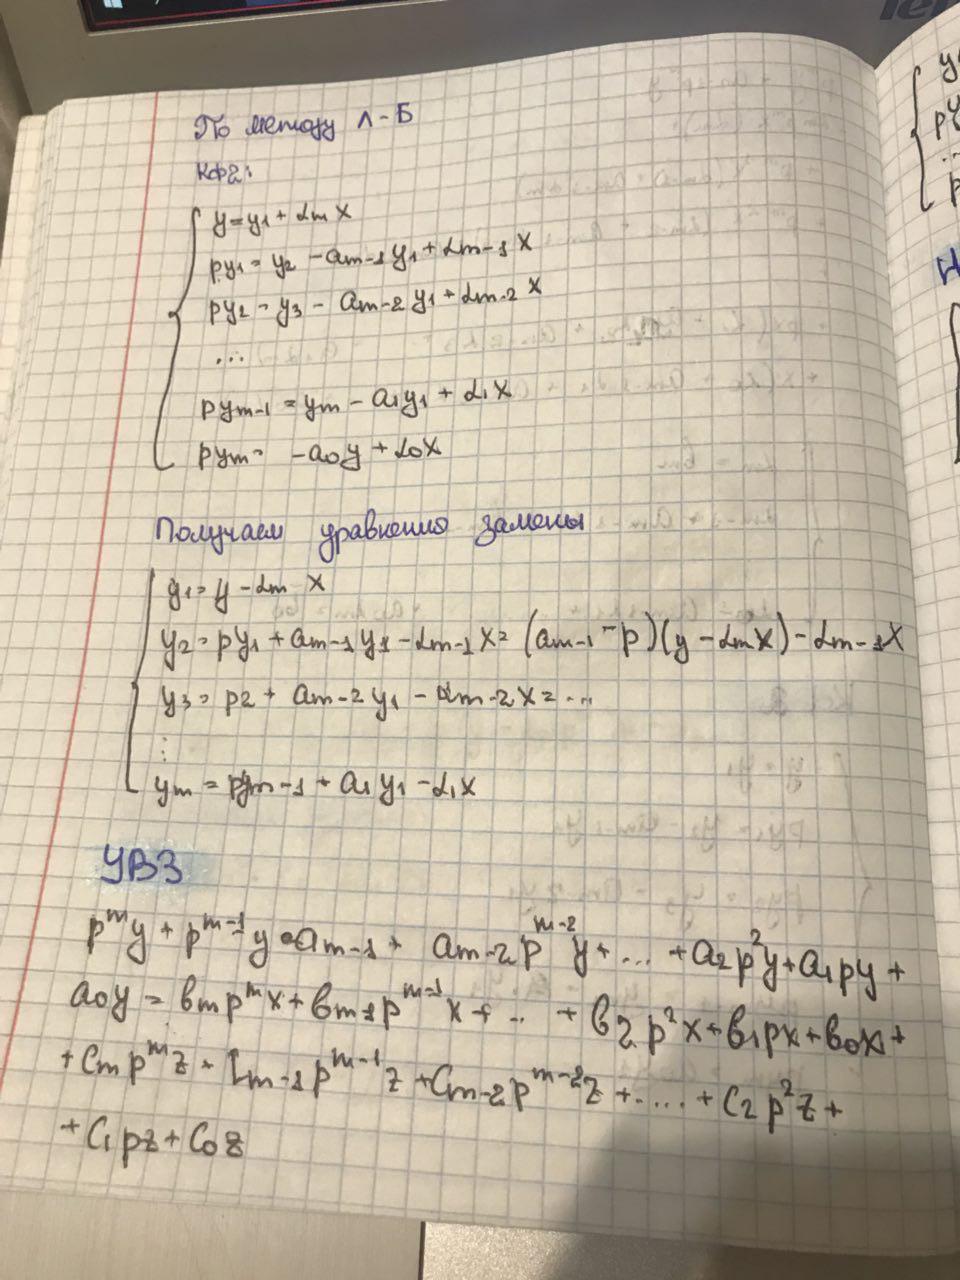 По методу Л-Б
КФ2:
y = y₁ + αm x
py₁ = y₂ - am-1 y₁ + αm-1 x
py₂ = y₃ - am-2 y₁ + αm-2 x
...
pym-1 = ym - a₁y₁ + α₁x
pym = -a₀y + α₀x
Получаем уравнения замены
y₁ = y - αm x
y₂ = py₁ + am-1 y₁ - αm-1 x = (am-1 - p)(y - αm x) - αm-1 x
y₃ = p2 + am-2 y₁ - αm-2 x = ...
⋮
ym = pym-1 + a₁y₁ - α₁x
УВЗ
pᵐy + pᵐ⁻¹y · am-1 + am-2 pᵐ⁻²y + ... + a₂p²y + a₁py +
a₀y = вm pᵐx + вm-1 pᵐ⁻¹x + .. + в₂p²x + в₁px + в₀x +
+ Cm pᵐz + Cm-1 pᵐ⁻¹z + Cm-2 pᵐ⁻²z + .... + C₂p²z +
+ C₁pz + C₀z